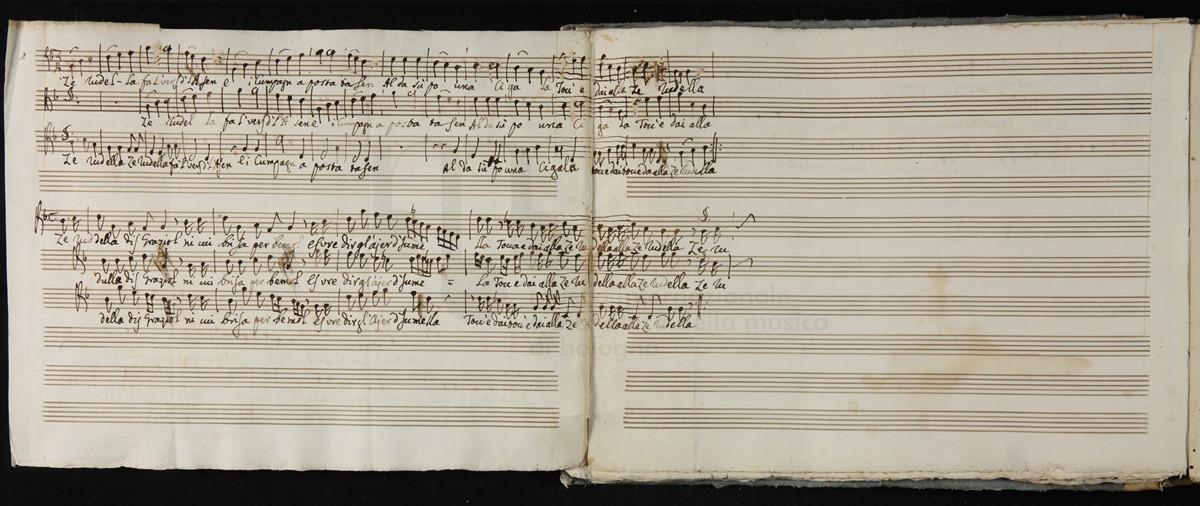 Ze Rudel-la fa l'vers d'l'Asen e i Cumpagn a posta ta sen Al da sù po una Ciga la Tou' e dai alla Ze Rudella
Ze Rudel la fa l'vers d'l'Asen e i Cumpagn a posta ta sen Al da sù po una Ci ga la Tou' e dai alla
Ze Rudella Ze Rudella fa l'vers d'l'Asen e i Cumpagn a posta ta sen Al da sù po una Cigala tou' e dai tou' e da alla Ze Rudella
Ze Rudella di Graziol ni mi brisa per bemol e s'ure dir gl'ajer d'fume La Toua e dai alla Ze Ru della alla Ze Rudella Ze Ru
dulla di Graziol ni mi brisa per bemol e s'ure dir gl'ajer d'fume = La Tou e dai alla Ze Ru della alla Ze Rudella Ze Ru
della di Graziol ni mi brisa per bemol e s'ure dir gl'ajer d'fume lla Tou' e dai tou' e dai alla Ze della alla Ze Rudella
nazionale
della musica
di bologna